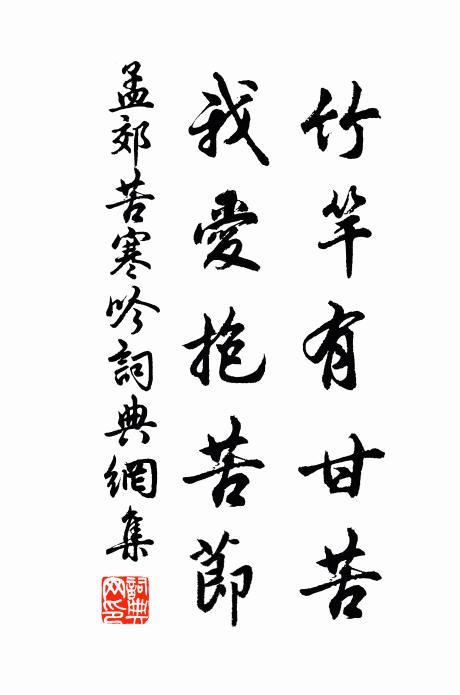 竹竿有甘苦
我愛抱苦節
孟郊苦寒吟詞典網集
詞典網印